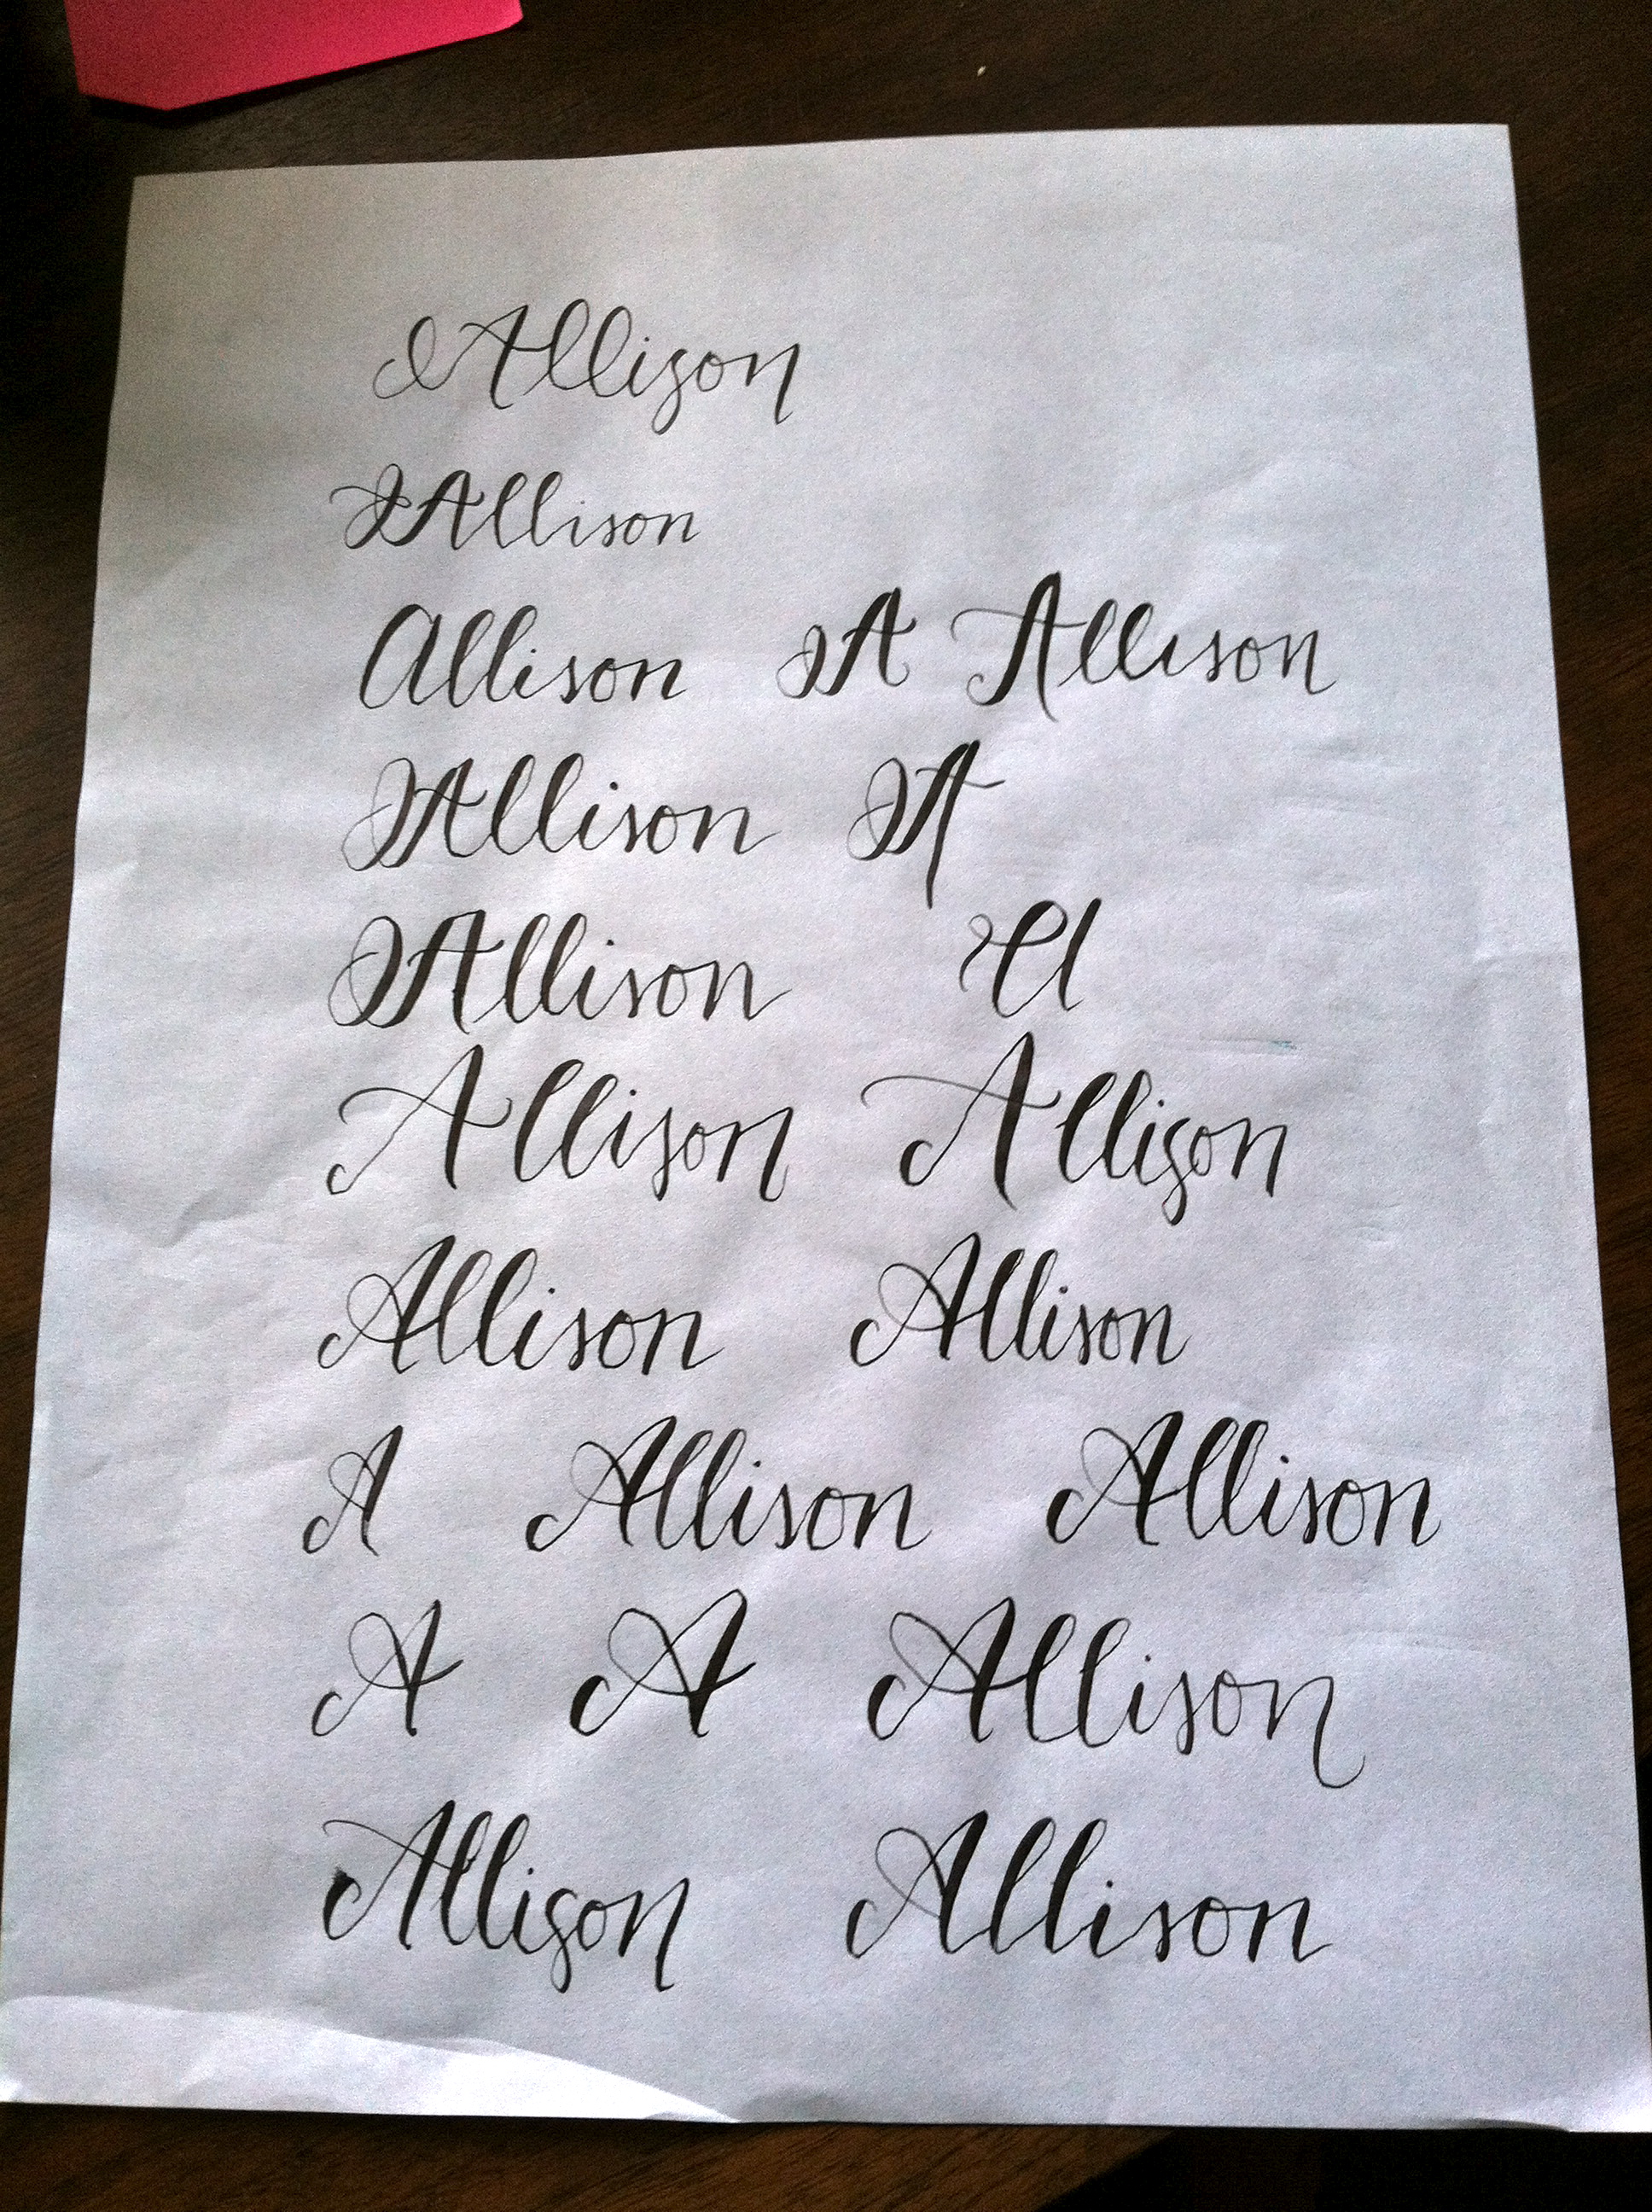 Allison
Allison
Allison A Allison
Allison A
Allison A
Allison Allison
Allison Allison
A Allison Allison
A A Allison
Allison Allison